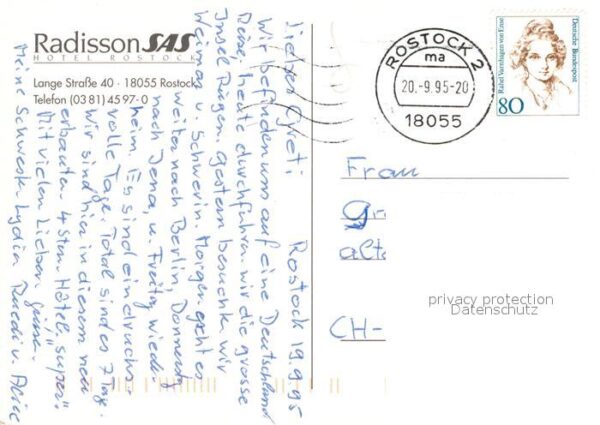 Radisson SAS
HOTEL ROSTOCK
Lange Straße 40 · 18055 Rostock
Telefon (03 81) 45 97-0
ROSTOCK 2
ma
20.-9.95-20
18055
Deutsche Bundespost
Rahel Varnhagen von Ense
80
Rostock 19.9.95
Wir befinden uns auf eine Deutschland
Reise, heute durchfuhren wir die grosse
Insel Rügen. Gestern besuchte wir
Weimar u. Schwerin. Morgen geht es
weiter nach Berlin, Donnerst.
nach Jena, u. Freitag wieder
heim. Es sind eindrucks-
volle Tage. Total sind es 7 Tage.
Wir sind hier in diesem neu
erbauten 4 Stern Hotel, "super".
Mit vielen Lieben
Ruedi u. Alice
Meine Schwester Lydia
Frau
Gr
alt
CH-
privacy protection
Datenschutz